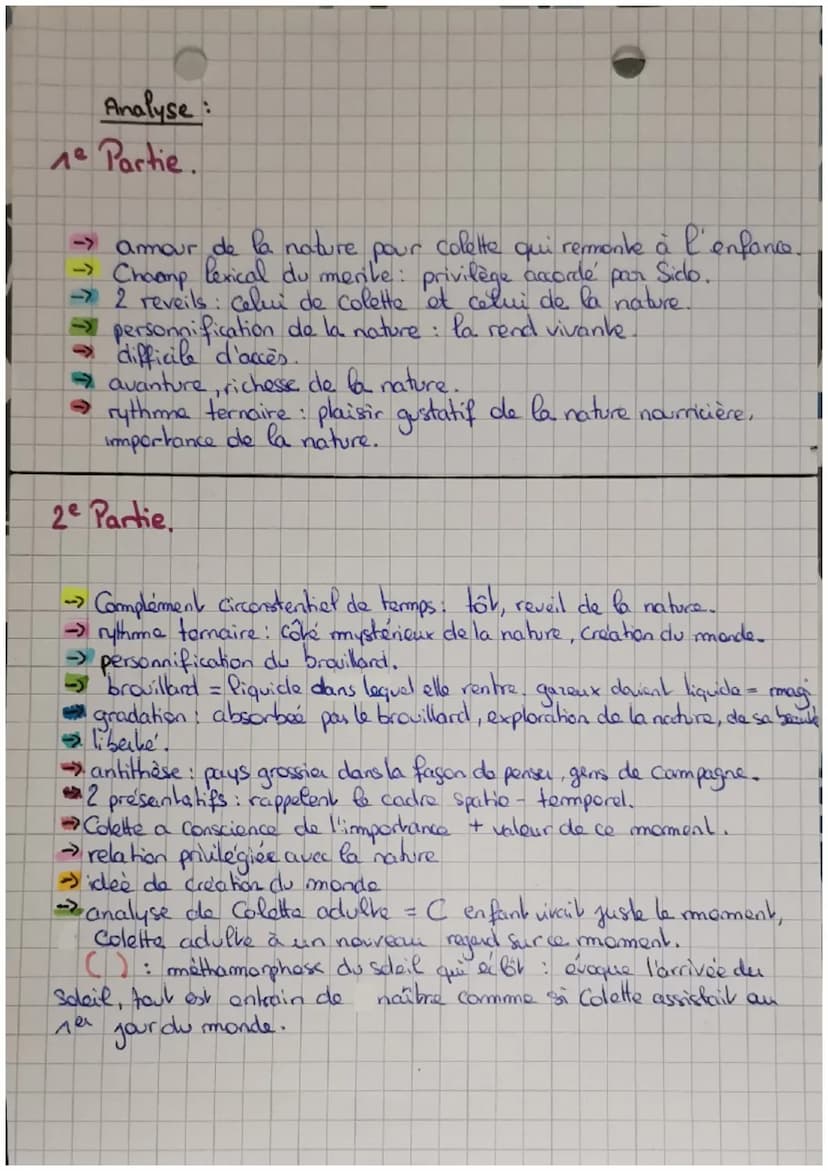 Analyse :
1e Partie.
→ amour de la nature pour colette qui remonte à l'enfance.
→ Chaamp lexical du merite : privilège accordé par Sido.
→ 2 reveils : celui de colette et celui de la nature.
→ personnification de la nature : la rend vivante.
→ difficile d'accès.
→ avanture, richesse de la nature.
→ rythme ternaire : plaisir gustatif de la nature nourricière,
importance de la nature.
2e Partie.
→ Complément circonstentiel de temps : tôt, reveil de la nature.
→ rythme ternaire : côté mystérieux de la nature, création du monde.
→ personnification du brouillard.
→ brouillard = liquide dans lequel elle rentre. gazeux devient liquide = magi
→ gradation : absorbeé par le brouillard, exploration de la nature, de sa beauté
→ liberté.
→ antithèse : pays grossier dans la façon de penser, gens de campagne.
→ 2 présentatifs : rappelent le cadre spatio-temporel.
→ Colette a conscience de l'importance + valeur de ce moment.
→ relation privilégiée avec la nature
→ ideè de création du monde
→ analyse de Colette adulte = C enfant vivait juste le moment,
Colette adulte à un nouveau regard sur ce moment.
( ) : méthamorphose du soleil qui éclôt : évoque l'arrivée du
Soleil, tout est entrain de naître comme si Colette assistait au
1er jour du monde.